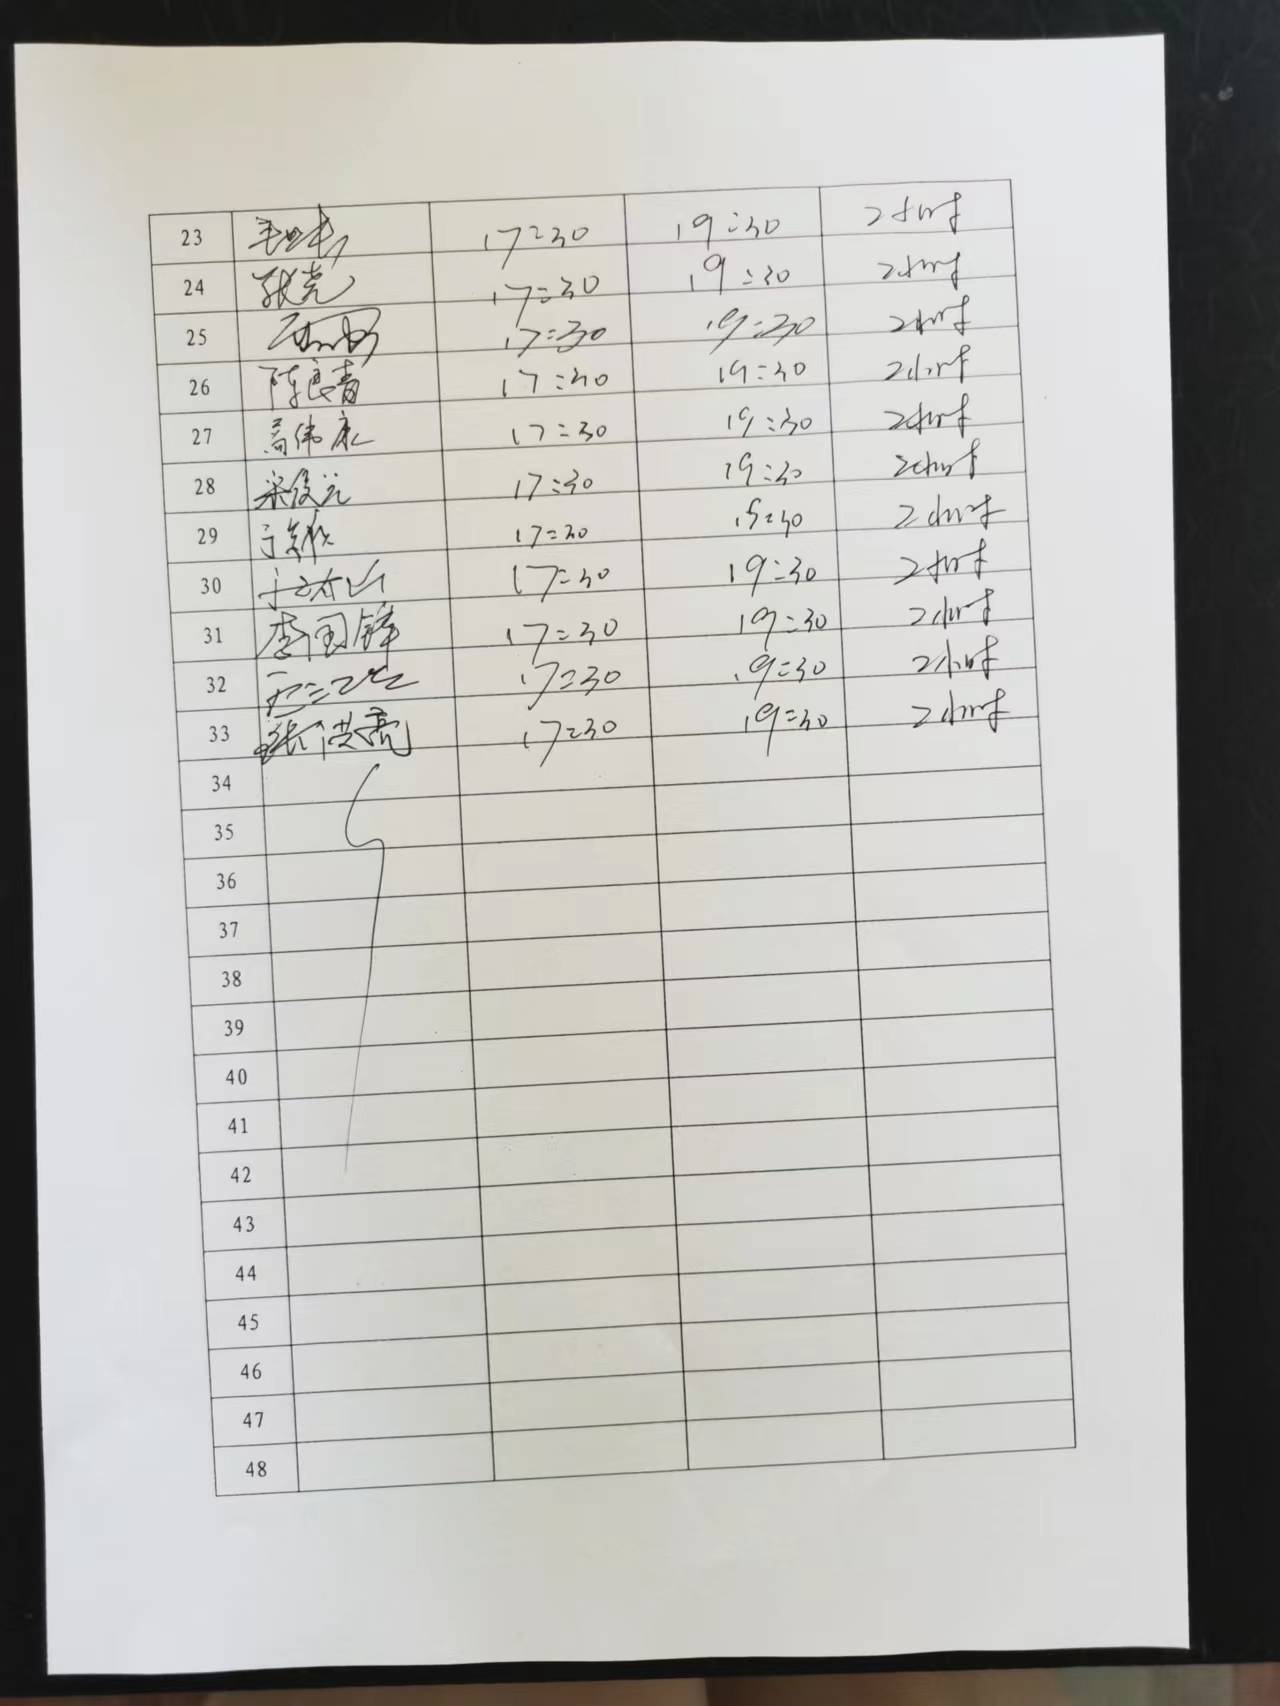 23 17:30 19:30 2小时
24 张亮 17:30 19:30 2小时
25 17:30 19:30 2小时
26 陈良青 17:30 19:30 2小时
27 高伟康 17:30 19:30 2小时
28 梁俊元 17:30 19:30 2小时
29 17:30 19:30 2小时
30 17:30 19:30 2小时
31 李国锋 17:30 19:30 2小时
32 17:30 19:30 2小时
33 张洪亮 17:30 19:30 2小时
34
35
36
37
38
39
40
41
42
43
44
45
46
47
48